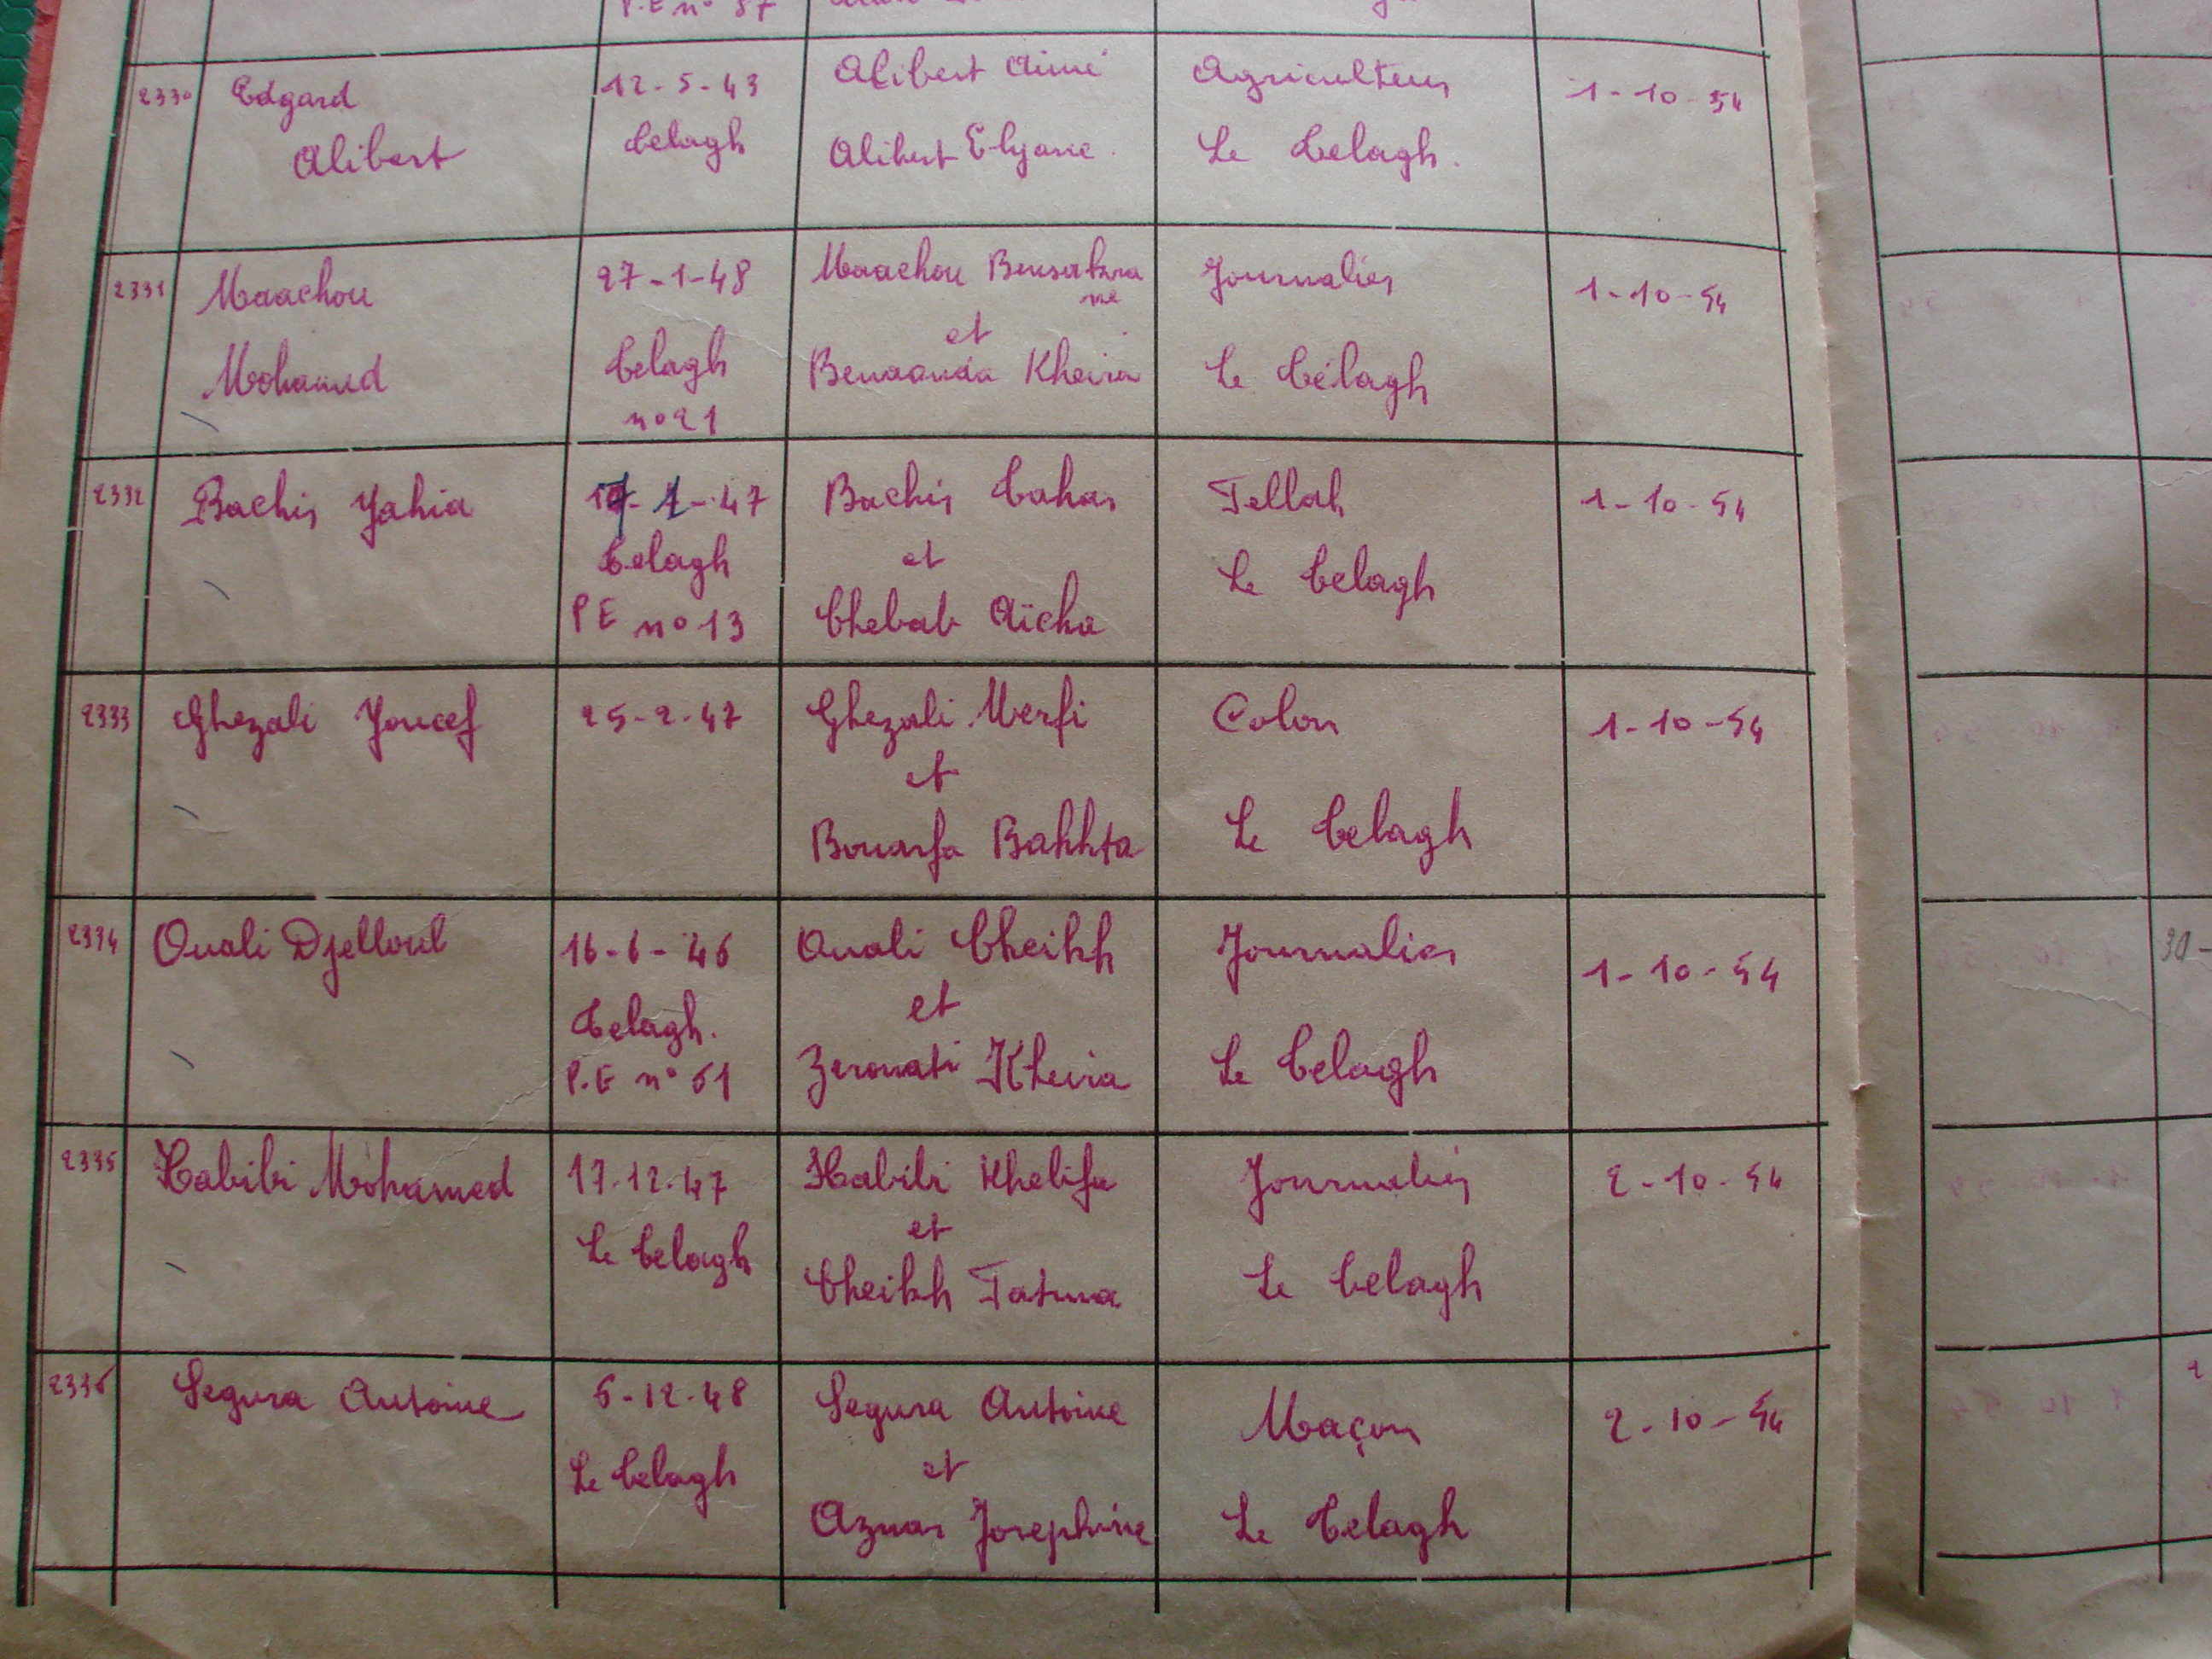 P.E nº 57
2330 Edgard 12-5-43 Alibert Aimé Agriculteur 1-10-54
Alibert Telagh Alibert Elyane. Le Telagh.
2331 Maachou 27-1-48 Maachou Bensahra Journalier 1-10-54
ne
et
Mohamed Telagh Benaouda Kheira Le Télagh
nº 21
2332 Bachir Yahia 17-1-47 Bachir Tahar Fellah 1-10-54
Telagh et Le Telagh
PE nº 13 Chebab Aïcha
2333 Ghezali Youcef 25-2-47 Ghezali Merfi Colon 1-10-54
et
Bouarfa Bakhta Le Telagh
2334 Ouali Djelloul 16-6-46 Ouali Cheikh Journalier 1-10-54
Telagh. et
P.E nº 61 Zerouati Kheira Le Telagh
2335 Habibi Mohamed 17.12.47 Habibi Khelifa Journalier 2-10-54
Le Telagh et
Cheikh Fatma Le Telagh
2336 Segura Antoine 5-12-48 Segura Antoine Maçon 2-10-54
Le Telagh et
Aznar Josephine Le Telagh
30-
2